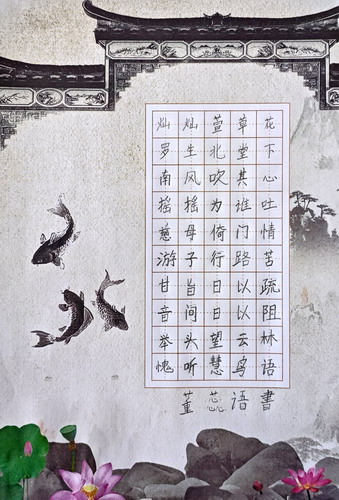 灿灿萱草花
罗生北堂下
南风吹其心
摇摇为谁吐
慈母倚门情
游子行路苦
甘旨日以疏
音问日以阻
举头望云林
愧听慧鸟语
董蕊语書